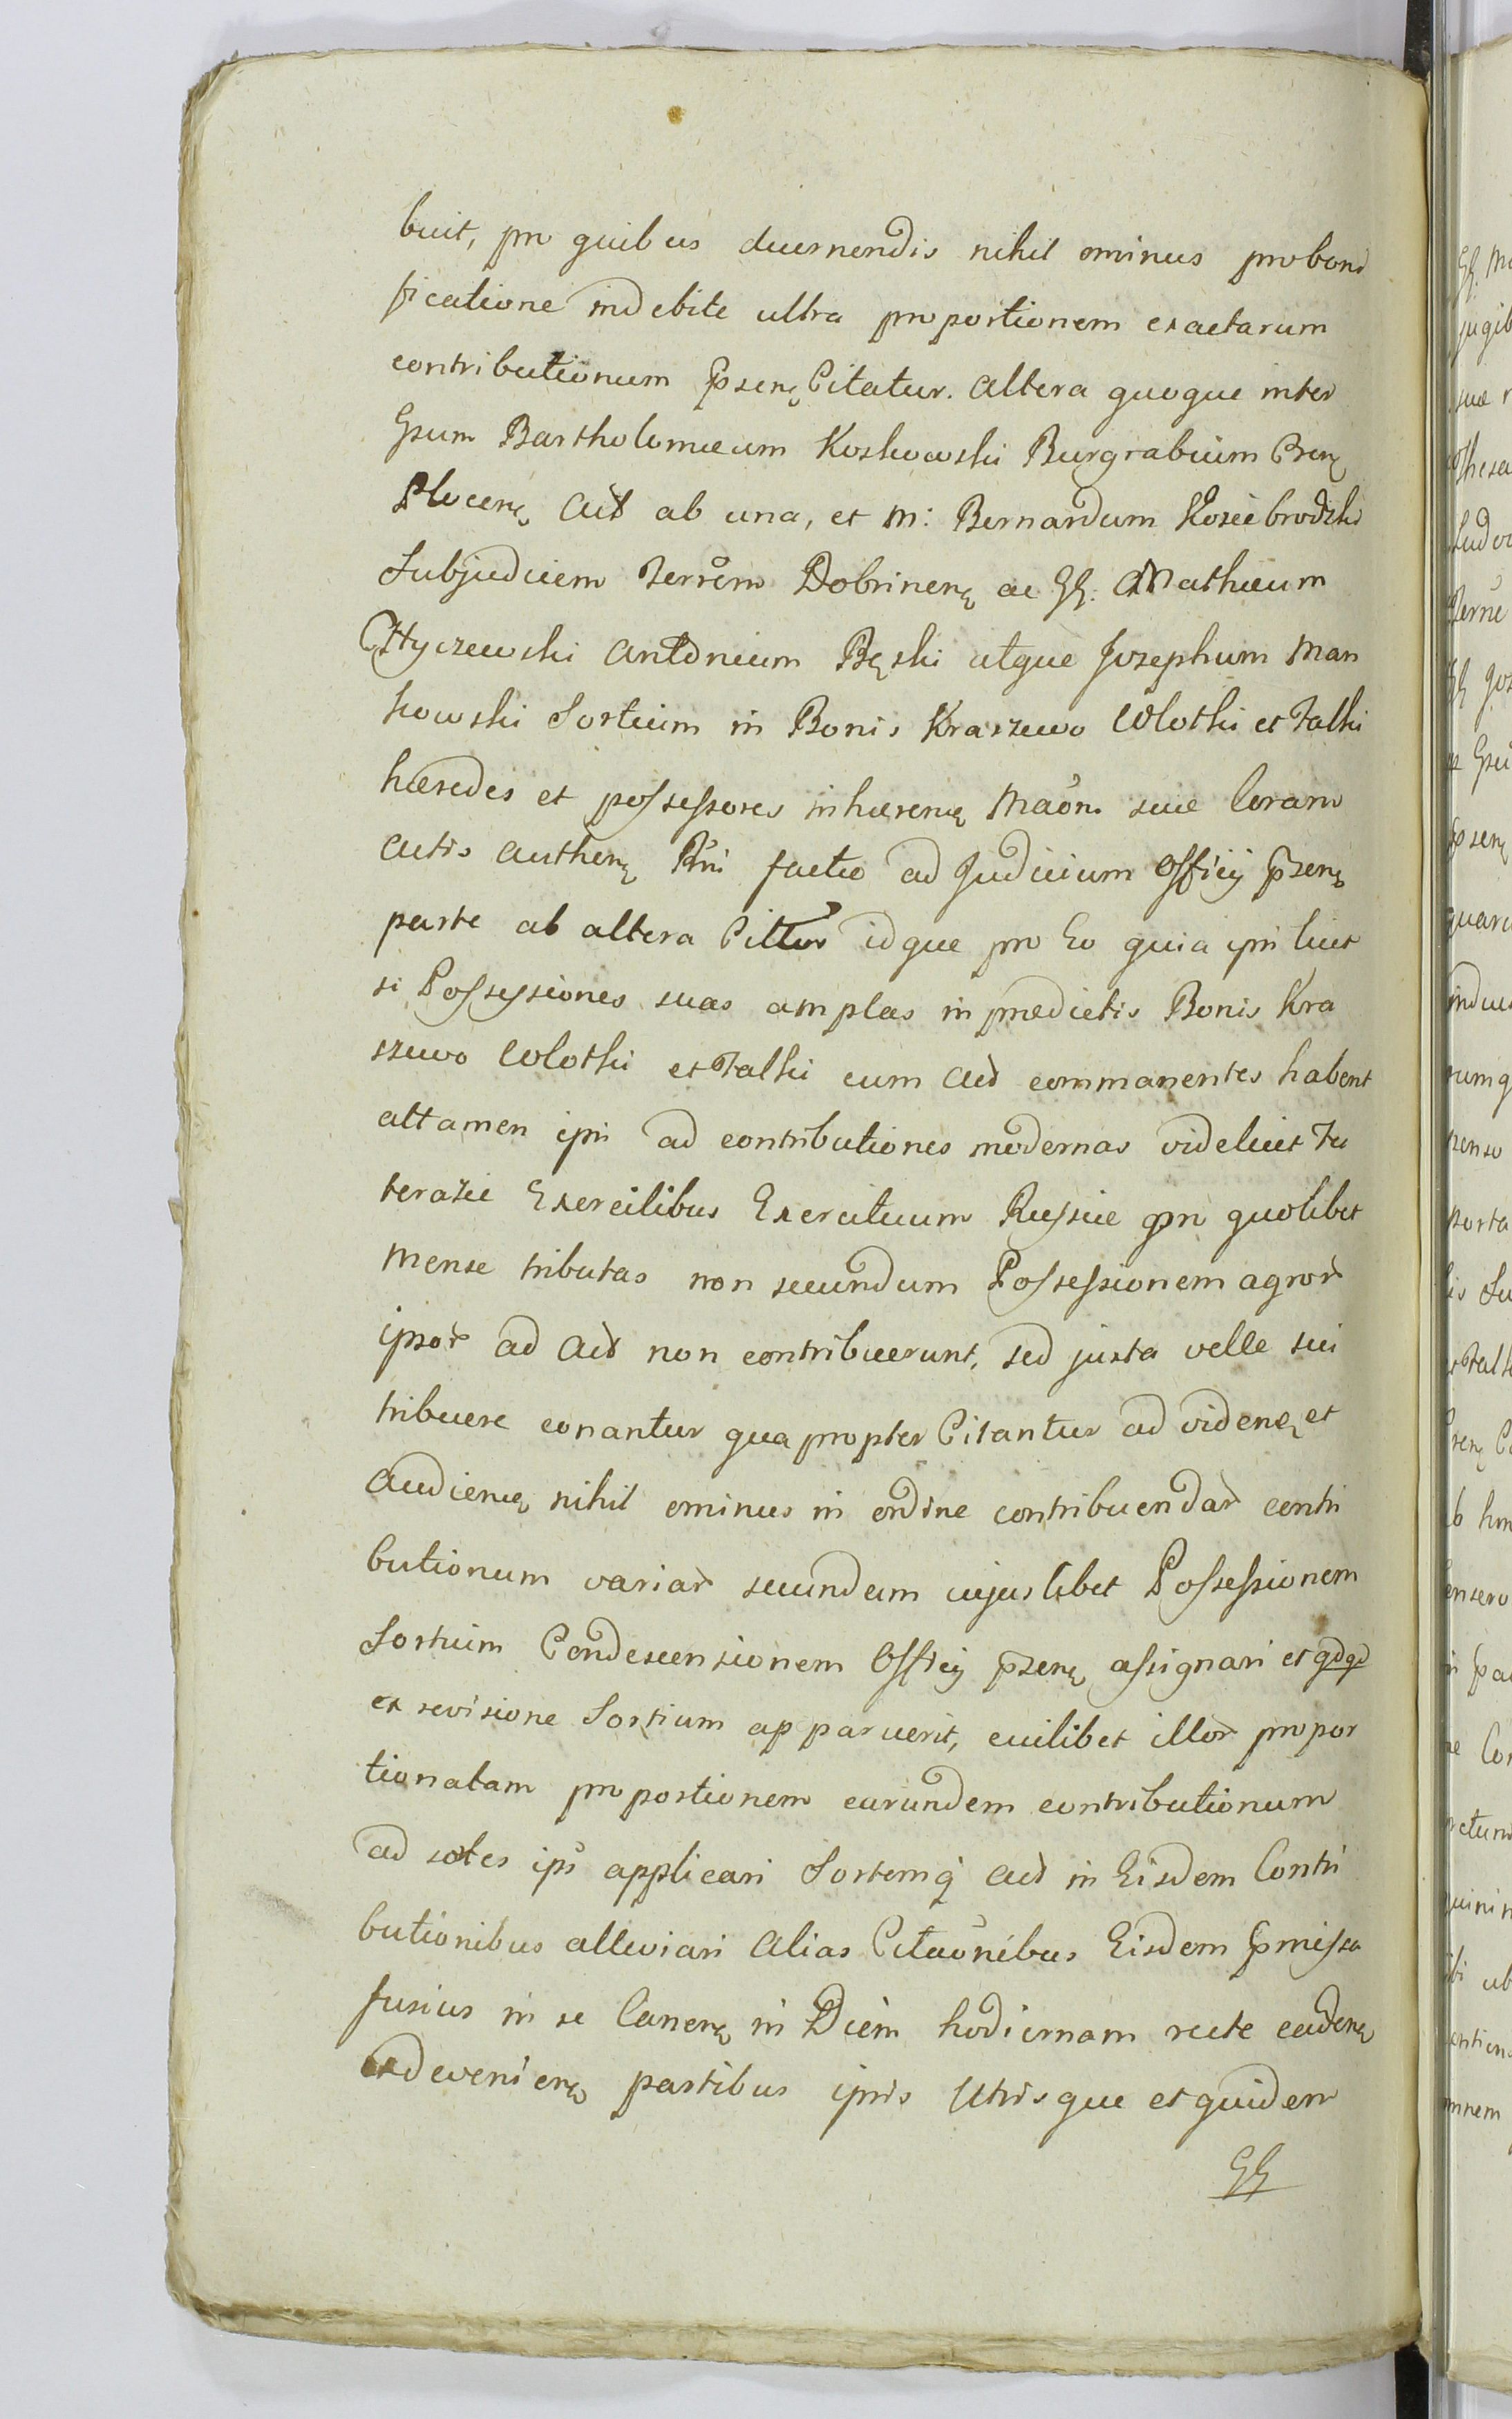 buit, pro quibus decernendis nihil ominus pro boni
ficatione indebite ultra proportionem exactarum
contributionum p̄senę Citatur. Altera quoque inter
Gsum Bartholomæum Koskowski Burgrabium Crenę
Plocenę Act ab una, et M: Bernardum Koziebrodzki
Subjudicem Terr̃em Dobrinenę ac GG. Mathæum
Antonium Bęski atque Josephum Man
kowski Sortium in Bonis Kraszewo Wlotki et Falki
hæredes et possessores inhærenę Mãõni suæ Coram
Actis Authenę Rñi factæ ad Judicium Officij p̄senę
parte ab altera Cittur idque pro Eo quia ipsi licet
si Possessiones suas amplas in prædictis Bonis Kra
szewo Wlotki et Falki cum Act commanentes habent
attamen ipsi ad contributiones modernas videlicet Fu
terazie Exercitibus Exercituum Russiæ pro quolibet
Mense tributas non secundum Possessionem agror
ipsor ad Act non contribuerunt, sed juxta velle sui
tribuere conantur qua propter Citantur ad videnę et
Audienę nihil ominus in ordine contribuendar contri
butionum variar secundum cujuslibet Possessionem
Sortium Condescensionem Officij p̄senę assignari et qdqd
ex revisione Sortium apparuerit, cuilibet illor propor
tionatam proportionem earundem contributionum
ad sortes ips applicari Sortemq Act in Eisdem Contri
butionibus alleviari Alias Citaõnibus Eisdem p̄missa
fusius in se Canenę in Diem hodiernam recte cadenę
et advenienę partibus ipsis Utrisque et quidem
GG